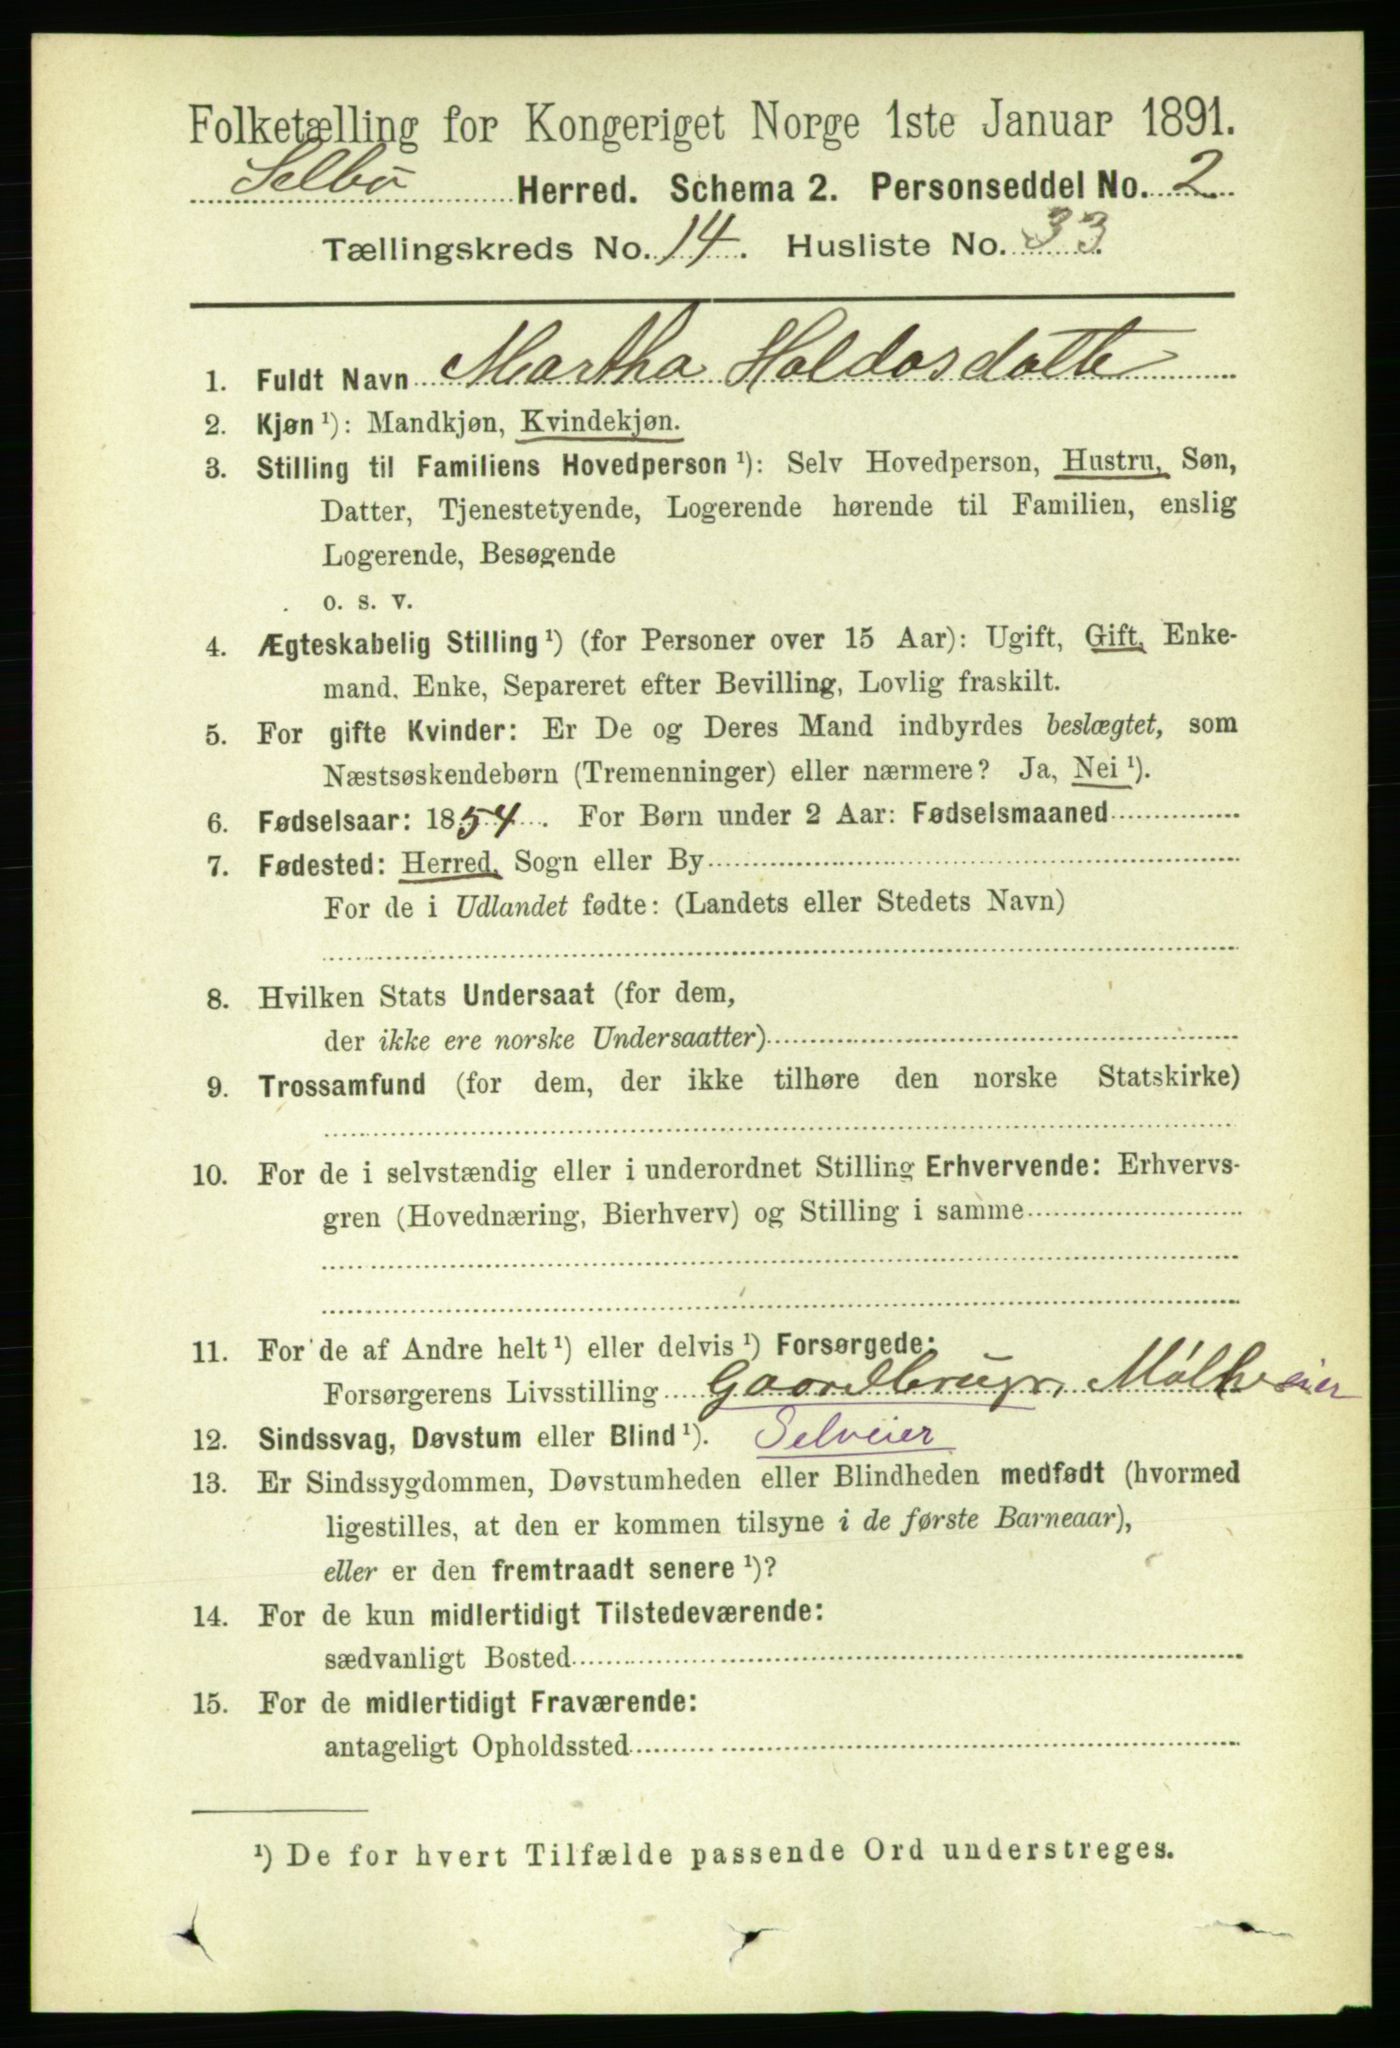 Folketælling for Kongeriget Norge 1ste Januar 1891.
Selbø Herred. Schema 2. Personseddel No. 2
Tællingskreds No. 14. Husliste No. 33
1. Fuldt Navn Martha Haldosdatte
2. Kjøn¹): Mandkjøn, Kvindekjøn.
3. Stilling til Familiens Hovedperson¹): Selv Hovedperson, Hustru, Søn,
Datter, Tjenestetyende, Logerende hørende til Familien, enslig
Logerende, Besøgende
o. s. v.
4. Ægteskabelig Stilling¹) (for Personer over 15 Aar): Ugift, Gift, Enke-
mand, Enke, Separeret efter Bevilling, Lovlig fraskilt.
5. For gifte Kvinder: Er De og Deres Mand indbyrdes beslægtet, som
Næstsøskendebørn (Tremenninger) eller nærmere? Ja, Nei¹).
6. Fødselsaar: 1854. For Børn under 2 Aar: Fødselsmaaned
7. Fødested: Herred, Sogn eller By
For de i Udlandet fødte: (Landets eller Stedets Navn)
8. Hvilken Stats Undersaat (for dem,
der ikke ere norske Undersaatter)
9. Trossamfund (for dem, der ikke tilhøre den norske Statskirke)
10. For de i selvstændig eller i underordnet Stilling Erhvervende: Erhvervs-
gren (Hovednæring, Bierhverv) og Stilling i samme
11. For de af Andre helt¹) eller delvis¹) Forsørgede:
Forsørgerens Livsstilling Gaardbrugr,
12. Sindssvag, Døvstum eller Blind¹). Selveier
13. Er Sindssygdommen, Døvstumheden eller Blindheden medfødt (hvormed
ligestilles, at den er kommen tilsyne i de første Barneaar),
eller er den fremtraadt senere¹)?
14. For de kun midlertidigt Tilstedeværende:
sædvanligt Bosted
15. For de midlertidigt Fraværende:
antageligt Opholdssted
¹) De for hvert Tilfælde passende Ord understreges.